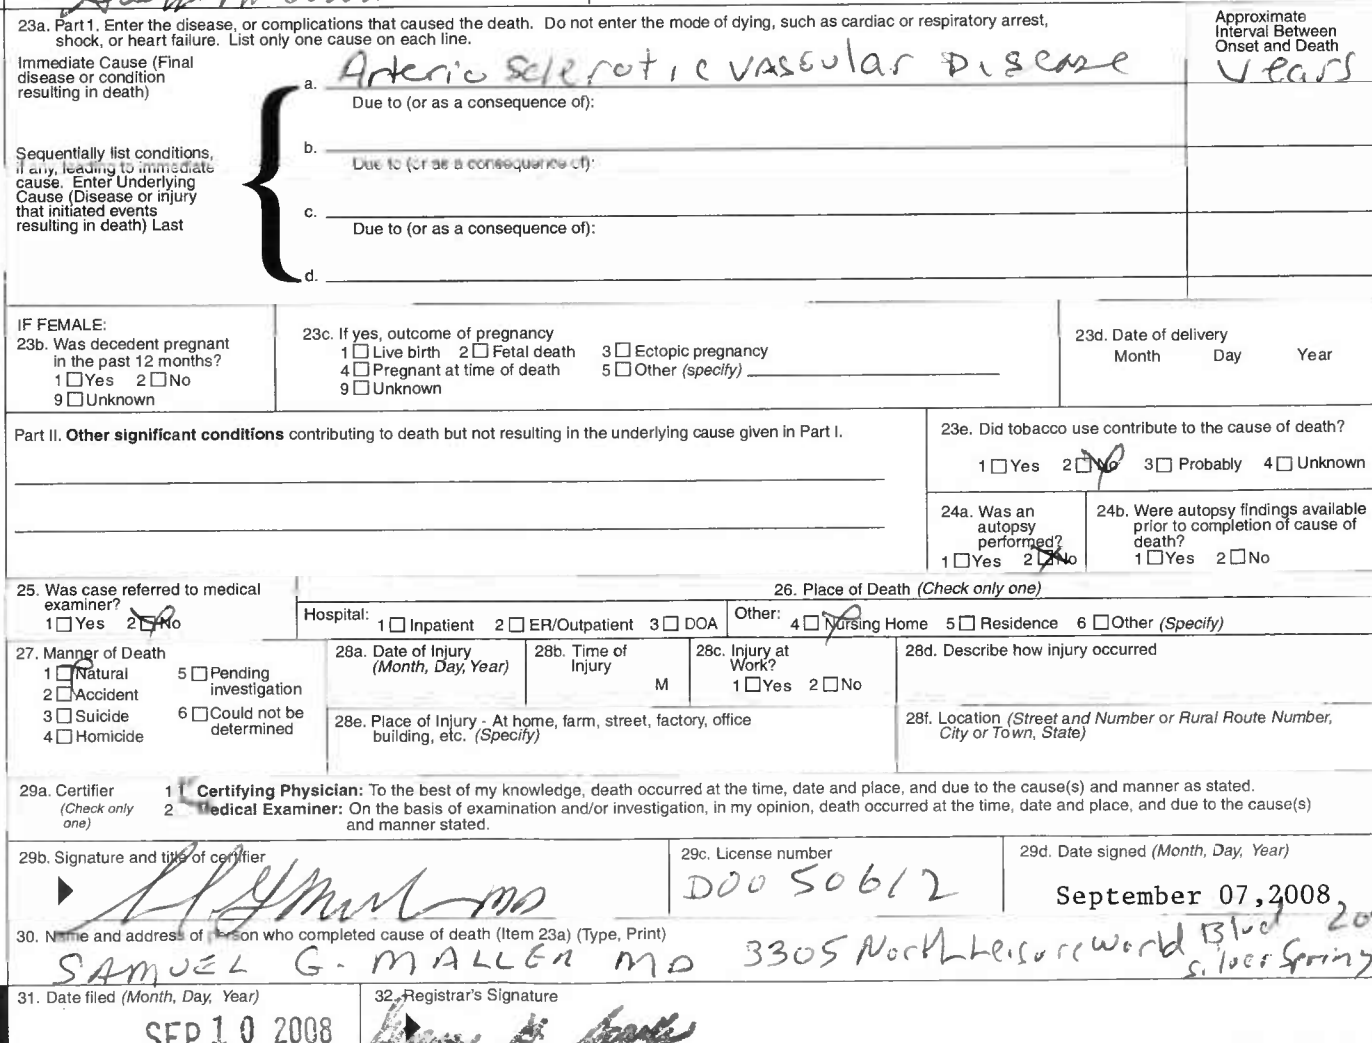 23a. Part 1. Enter the disease, or complications that caused the death. Do not enter the mode of dying, such as cardiac or respiratory arrest,
shock, or heart failure. List only one cause on each line.
Approximate
Interval Between
Onset and Death
Immediate Cause (Final
disease or condition
resulting in death)
a. Arterio Sclerotic Vascular Disease
Years
Due to (or as a consequence of):
Sequentially list conditions,
if any, leading to immediate
cause. Enter Underlying
Cause (Disease or injury
that initiated events
resulting in death) Last
b.
Due to (or as a consequence of):
c.
Due to (or as a consequence of):
d.
IF FEMALE:
23b. Was decedent pregnant
in the past 12 months?
1 ☐ Yes 2 ☐ No
9 ☐ Unknown
23c. If yes, outcome of pregnancy
1 ☐ Live birth 2 ☐ Fetal death 3 ☐ Ectopic pregnancy
4 ☐ Pregnant at time of death 5 ☐ Other (specify)
9 ☐ Unknown
23d. Date of delivery
Month Day Year
Part II. Other significant conditions contributing to death but not resulting in the underlying cause given in Part I.
23e. Did tobacco use contribute to the cause of death?
1 ☐ Yes 2 ☒ No 3 ☐ Probably 4 ☐ Unknown
24a. Was an
autopsy
performed?
1 ☐ Yes 2 ☒ No
24b. Were autopsy findings available
prior to completion of cause of
death?
1 ☐ Yes 2 ☐ No
25. Was case referred to medical
examiner?
1 ☐ Yes 2 ☒ No
26. Place of Death (Check only one)
Hospital: 1 ☐ Inpatient 2 ☐ ER/Outpatient 3 ☐ DOA Other: 4 ☒ Nursing Home 5 ☐ Residence 6 ☐ Other (Specify)
27. Manner of Death
1 ☒ Natural
2 ☐ Accident
3 ☐ Suicide
4 ☐ Homicide
5 ☐ Pending
investigation
6 ☐ Could not be
determined
28a. Date of Injury
(Month, Day, Year)
28b. Time of
Injury
M
28c. Injury at
Work?
1 ☐ Yes 2 ☐ No
28d. Describe how injury occurred
28e. Place of Injury - At home, farm, street, factory, office
building, etc. (Specify)
28f. Location (Street and Number or Rural Route Number,
City or Town, State)
29a. Certifier
(Check only
one)
1 Certifying Physician: To the best of my knowledge, death occurred at the time, date and place, and due to the cause(s) and manner as stated.
2 Medical Examiner: On the basis of examination and/or investigation, in my opinion, death occurred at the time, date and place, and due to the cause(s)
and manner stated.
29b. Signature and title of certifier
MD
29c. License number
D0050612
29d. Date signed (Month, Day, Year)
September 07,2008
30. Name and address of person who completed cause of death (Item 23a) (Type, Print)
SAMUEL G. MALLER MD 3305 North Leisure World Blvd 20
Silver Spring
31. Date filed (Month, Day, Year)
SEP 10 2008
32. Registrar's Signature